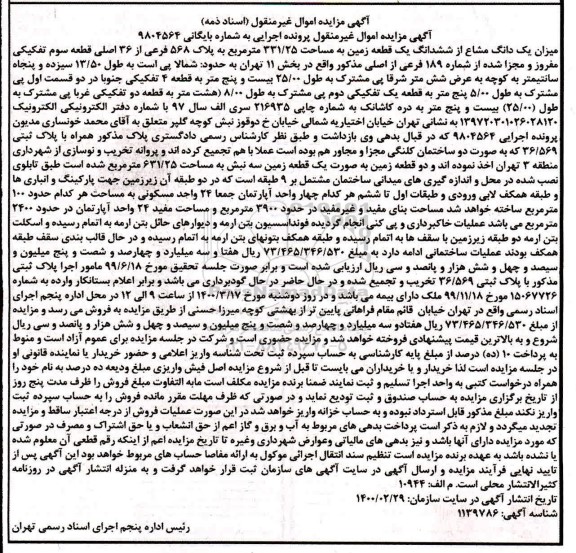 آگهی مزایده اموال غیرمنقول (اسناد ذمه)
آگهی مزایده اموال غیرمنقول پرونده اجرایی به شماره بایگانی ۹۸۰۴۵۶۴
میزان یک دانگ مشاع از ششدانگ یک قطعه زمین به مساحت ۳۳۱/۲۵ مترمربع به پلاک ۵۶۸ فرعی از ۳۶ اصلی قطعه سوم تفکیکی
مفروز و مجزا شده از شماره ۱۸۹ فرعی از اصلی مذکور واقع در بخش ۱۱ تهران به حدود: شمالا پی است به طول ۱۳/۵۰ سیزده و پنجاه
سانتیمتر به کوچه به عرض شش متر شرقا پی مشترک به طول ۲۵/۰۰ بیست و پنج متر به قطعه ۴ تفکیکی جنوبا در دو قسمت اول پی
مشترک به طول ۵/۰۰ پنج متر به قطعه یک تفکیکی دوم پی مشترک به طول ۸/۰۰ (هشت متر به قطعه دو تفکیکی غربا پی مشترک به
طول (۲۵/۰۰) بیست و پنج متر به دره کاشانک به شماره چاپی ۲۱۶۹۳۵ سری الف سال ۹۷ با شماره دفتر الکترونیکی الکترونیک
۱۳۹۷۲۰۳۰۱۰۲۶۰۲۸۱۲۰ به نشانی تهران خیابان اختیاریه شمالی خیابان خ دوقوز نبش کوچه گلپر متعلق به آقای محمد خونساری مدیون
پرونده اجرایی ۹۸۰۴۵۶۴ که در قبال بدهی وی بازداشت و طبق نظر کارشناس رسمی دادگستری پلاک مذکور همراه با پلاک ثبتی
۳۶/۵۶۹ که به صورت دو ساختمان کلنگی مجزا و مجاور هم بوده است عملا با هم تجمیع کرده اند و پروانه تخریب و نوسازی از شهرداری
منطقه ۳ تهران اخذ نموده اند و دو قطعه زمین به صورت یک قطعه زمین سه نبش به مساحت ۶۳۱/۲۵ مترمربع شده است طبق تابلوی
نصب شده در محل و اندازه گیری های میدانی ساختمان مشتمل بر ۹ طبقه است که در دو طبقه آن زیرزمین جهت پارکینگ و انباری ها
و طبقه همکف لابی ورودی و طبقات اول تا ششم هر کدام چهار واحد آپارتمان جمعا ۲۴ واحد مسکونی به مساحت هر کدام حدود ۱۰۰
مترمربع ساخته خواهد شد مساحت بنای مفید و غیرمفید در حدود ۳۹۰۰ مترمربع و مساحت مفید ۲۴ واحد آپارتمان در حدود ۲۴۰۰
مترمربع می باشد عملیات خاکبرداری و پی کنی انجام گردیده فونداسیون بتن ارمه و دیوارهای حائل بتن ارمه به اتمام رسیده و اسکلت
بتن ارمه دو طبقه زیرزمین با سقف ها به اتمام رسیده و طبقه همکف بتونهای بتن ارمه به اتمام رسیده و در حال قالب بندی سقف طبقه
همکف بودند عملیات ساختمانی ادامه دارد به مبلغ ۷۳/۴۶۵/۳۴۶/۵۳۰ ریال هفتاد و سه میلیارد و چهارصد و شصت و پنج میلیون و
سیصد و چهل و شش هزار و پانصد و سی ریال ارزیابی شده است و برابر صورت جلسه تحقیق مورخ ۹۹/۶/۱۸ مامور اجرا پلاک ثبتی
مذکور با پلاک ثبتی ۳۶/۵۶۹ تخریب و تجمیع شده و در حال حاضر در حال گودبرداری می باشد و برابر اعلام بستانکار وارده به شماره
۱۵۰۶۷۷۲۶ مورخ ۹۹/۱۱/۱۸ ملک دارای بیمه می باشد و در روز دوشنبه مورخ ۱۴۰۰/۳/۱۷ از ساعت ۹ الی ۱۲ در محل اداره پنجم اجرای
اسناد رسمی واقع در تهران خیابان قائم مقام فراهانی پایین تر از بهشتی کوچه میرزا حسنی از طریق مزایده به فروش می رسد و مزایده
از مبلغ ۷۳/۴۶۵/۳۴۶/۵۳۰ ریال هفتادو سه میلیارد و چهارصد و شصت و پنج میلیون و سیصد و چهل و شش هزار و پانصد و سی ریال
شروع و به بالاترین قیمت پیشنهادی فروخته خواهد شد و مزایده حضوری است و شرکت در جلسه مزایده برای عموم آزاد است و منوط
به پرداخت ۱۰ (ده) درصد از مبلغ پایه کارشناسی به حساب سپرده ثبت تحت شناسه واریز اعلامی و حضور خریدار یا نماینده قانونی او
در جلسه مزایده است لذا خریدار و یا خریداران می بایست تا قبل از شروع مزایده اصل فیش واریزی مبلغ ودیعه ده درصد به نام خود را
همراه درخواست کتبی به واحد اجرا تسلیم و ثبت نمایند ضمنا برنده مزایده مکلف است مابه التفاوت مبلغ فروش را ظرف مدت پنج روز
از تاریخ برگزاری مزایده به حساب صندوق و ثبت تودیع نماید و در صورتی که ظرف مهلت مقرر مانده فروش را به حساب سپرده ثبت
واریز نکند مبلغ مذکور قابل استرداد نبوده و به حساب خزانه واریز خواهد شد در این صورت عملیات فروش از درجه اعتبار ساقط و مزایده
تجدید میگردد و لازم به ذکر است پرداخت بدهی های مربوط به آب و برق و گاز اعم از حق انشعاب و یا حق اشتراک و مصرف در صورتی
که مورد مزایده دارای آنها باشد و نیز بدهی های مالیاتی وعوارض شهرداری وغیره تا تاریخ مزایده اعم از اینکه رقم قطعی آن معلوم شده
یا نشده باشد به عهده برنده مزایده است تنظیم سند انتقال اجرائی موکول به ارائه مفاصا حساب های مربوط خواهد بود این آگهی پس از
تایید نهایی فرآیند مزایده و ارسال آگهی در سایت آگهی های سازمان ثبت قرار خواهد گرفت و به منزله انتشار آگهی در روزنامه
کثیرالانتشار محلی است. م الف: ۱۰۹۴۴
تاریخ انتشار آگهی در سایت سازمان: ۱۴۰۰/۰۲/۲۹
شناسه آگهی: ۱۱۳۹۷۸۶
رئیس اداره پنجم اجرای اسناد رسمی تهران